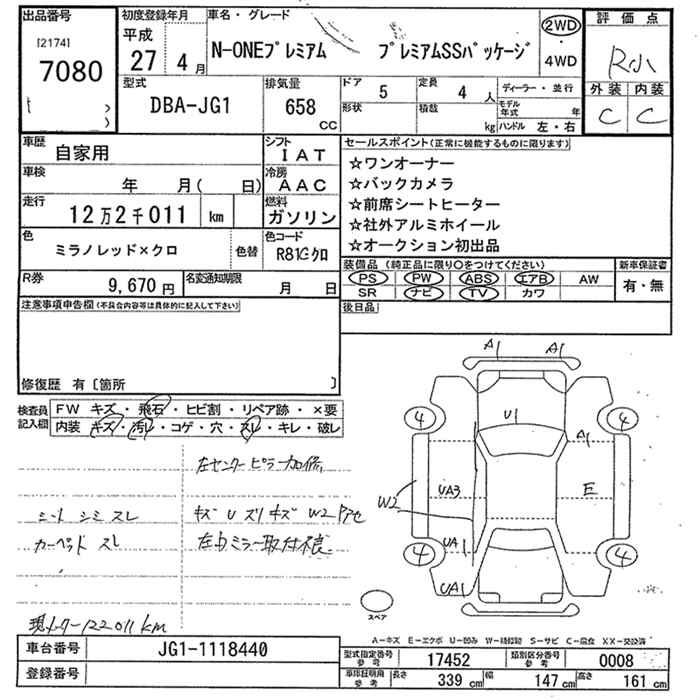 出品番号
[2174]
7080
初度登録年月
平成
27 4月
車名・グレード
N-ONEプレミアム プレミアムSSパッケージ
2WD
・
4WD
評価点
R小
外装 内装
C C
型式
DBA-JG1
排気量
658
CC
ドア
5
定員
4 人
ディーラー・並行
形状
積載
kg
モデル年式 年
ハンドル 左・右
車歴
自家用
シフト
IAT
車検
年 月( 日)
冷房
AAC
走行
12万2千011 km
燃料
ガソリン
色
ミラノレッド×クロ
色替
色コード
R81Cクロ
R券
9,670円
名変通知期限
月 日
セールスポイント(正常に機能するものに限ります)
☆ワンオーナー
☆バックカメラ
☆前席シートヒーター
☆社外アルミホイール
☆オークション初出品
装備品(純正品に限り○をつけてください)
新車保証書
PS PW ABS エアB AW
SR ナビ TV カワ
有・無
後日品
注意事項申告欄(不具合内容等は具体的に記入して下さい)
修復歴 有〔箇所 〕
検査員記入欄
FW キズ・飛石・ヒビ割・リペア跡・×要
内装 キズ・汚レ・コゲ・穴・スレ・キレ・破レ
左センターピラー加修
シート シミ スレ
キズ U ズリキズ W2 アセ
カーペット スレ
左ミラー取付不良
現メーター122011km
A1 A1
U1
4 4
A1
UA3 E
W2
UA1
4 4
UA1
スペア
A-キズ E-エクボ U-凹み W-補修跡 S-サビ C-腐食 XX-交換済
車台番号
JG1-1118440
登録番号
型式指定番号
参考
17452
類別区分番号
参考
0008
車庫証明用
参考
長さ
339 cm
幅
147 cm
高さ
161 cm